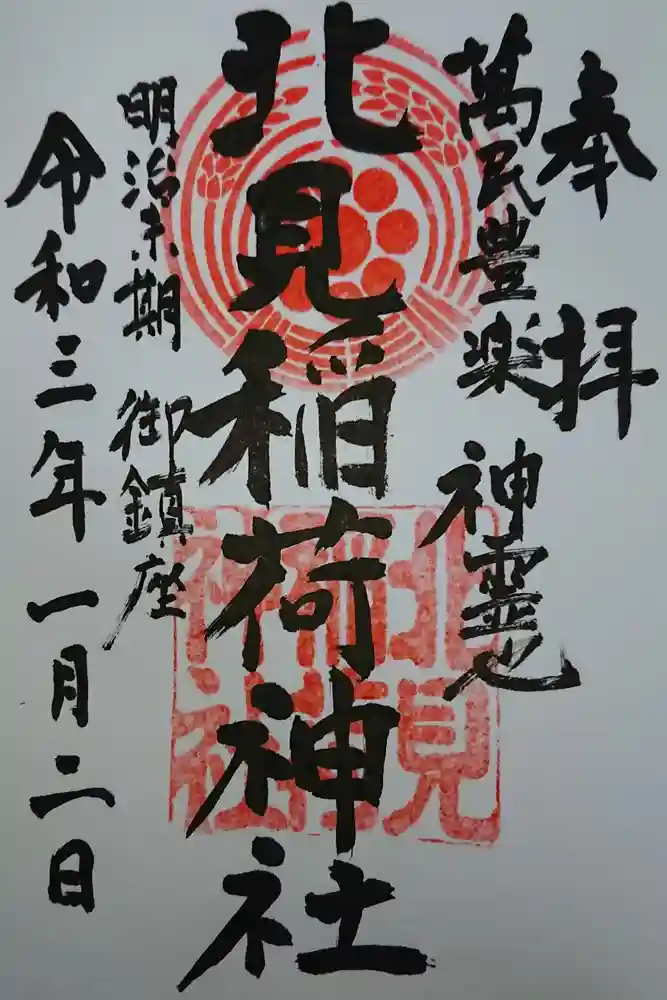 奉拝
萬民豊楽 神霊也
北見稲荷神社
明治末期 御鎮座
令和三年一月二日
北見稲荷神社